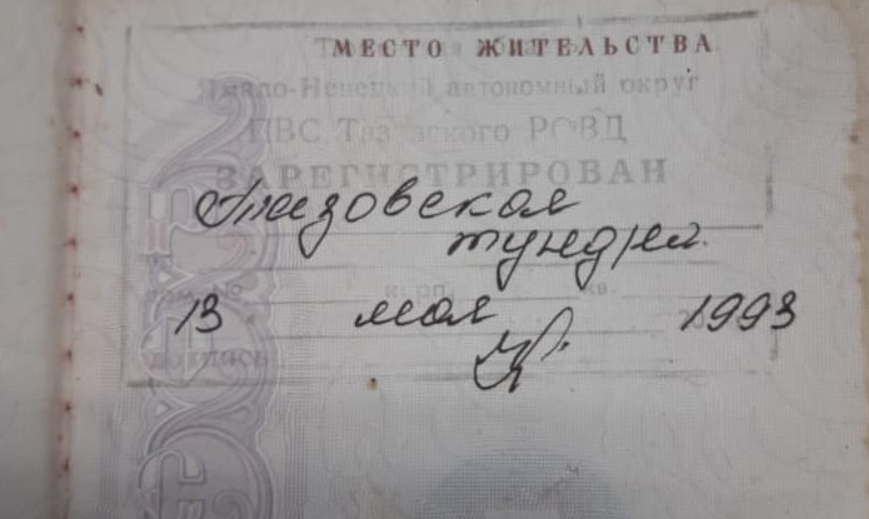 МЕСТО ЖИТЕЛЬСТВА
Ямало-Ненецкий автономный округ
ПВС Тазовского РОВД
ЗАРЕГИСТРИРОВАН
Тазовская
тундра.
корп. кв.
13 мая 1993
подпись